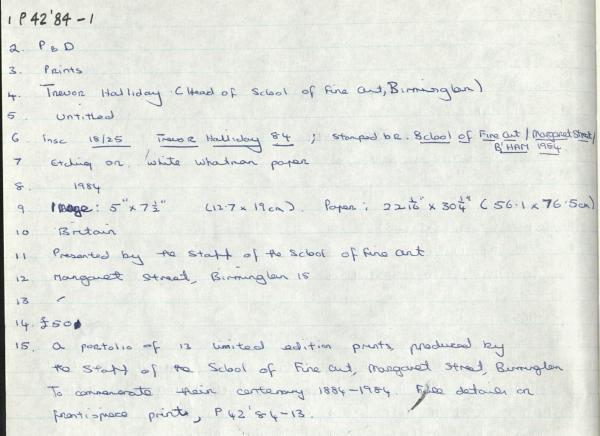 1 P 42'84-1
2. P & D
3. Prints
4. Trevor Halliday (Head of School of Fine Art, Birmingham)
5 Untitled
6 Insc 18/25 Trevor Halliday 84 ; stamped b.r. School of Fine Art / Margaret Street /
B'HAM 1984
7 Etching on white whatman paper
8. 1984
9 Image: 5" x 7½" (12.7 x 19cm). Paper: 22 1/16" x 30¼" (56.1 x 76.5cm)
10 Britain
11 Presented by the Staff of the School of Fine Art
12 Margaret Street, Birmingham 15
13 -
14. £50
15. A portfolio of 13 limited edition prints produced by
the Staff of the School of Fine Art, Margaret Street, Birmingham
To commemorate their centenary 1884-1984. Full details on
frontispiece prints, P 42'84-13.